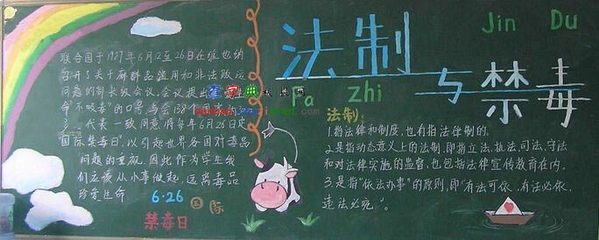 联合国于1987年6月12至26日在维也纳
召开了关于麻醉品滥用和非法贩运
问题的部长级会议,会议提出
命不吸毒"的口号,与会138个国家的
代表一致同意将每年6月26日定
国际禁毒日",以引起世界各国对毒品
问题的重视。因此作为学生我
们应该从小事做起,远离毒品
珍爱生命
6·26
国际
禁毒日
法制
Fa zhi
与
Jin Du
禁毒
法制:
1.指法律和制度,也有指法律制的。
2.是指动态意义上的法制,即指立法、执法、司法、守法
和对法律实施的监督,也包括法律宣传教育在内。
3.是指"依法办事"的原则,即"有法可依、有法必依、
违法必究"。